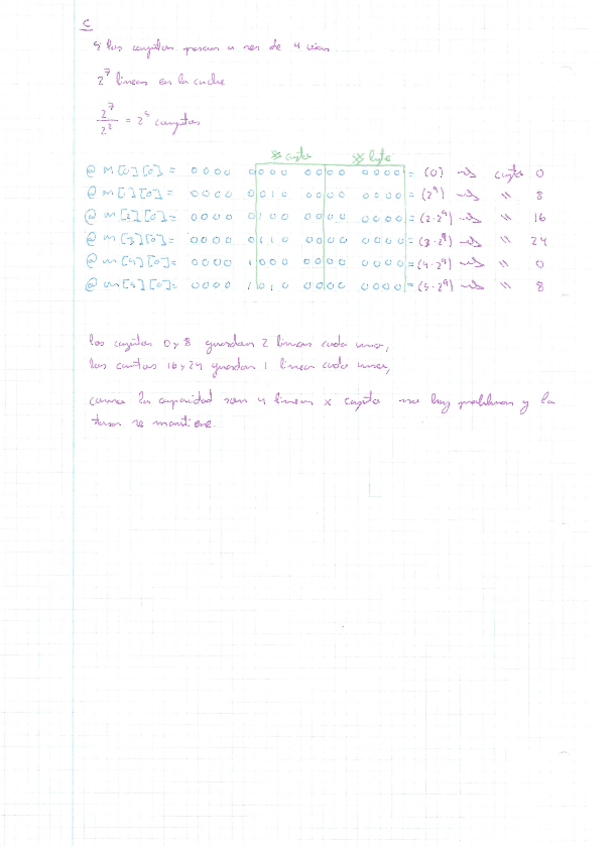 C
Si los conjuntos pasan a ser de 4 vías
2^7 líneas en la cache
2^7 / 2^2 = 2^5 conjuntos
# cjto # byte
@ M[0][0] = 0000 0000 0000 0000 = (0) → cjto 0
@ M[1][0] = 0000 0010 0000 0000 = (2^9) → " 8
@ M[2][0] = 0000 0100 0000 0000 = (2·2^9) → " 16
@ M[3][0] = 0000 0110 0000 0000 = (3·2^9) → " 24
@ M[4][0] = 0000 1000 0000 0000 = (4·2^9) → " 0
@ M[5][0] = 0000 1010 0000 0000 = (5·2^9) → " 8
los conjuntos 0 y 8 guardan 2 líneas cada uno,
los conjuntos 16 y 24 guardan 1 línea cada uno,
como la capacidad son 4 líneas x cojto no hay problemas y la
tasa se mantiene.